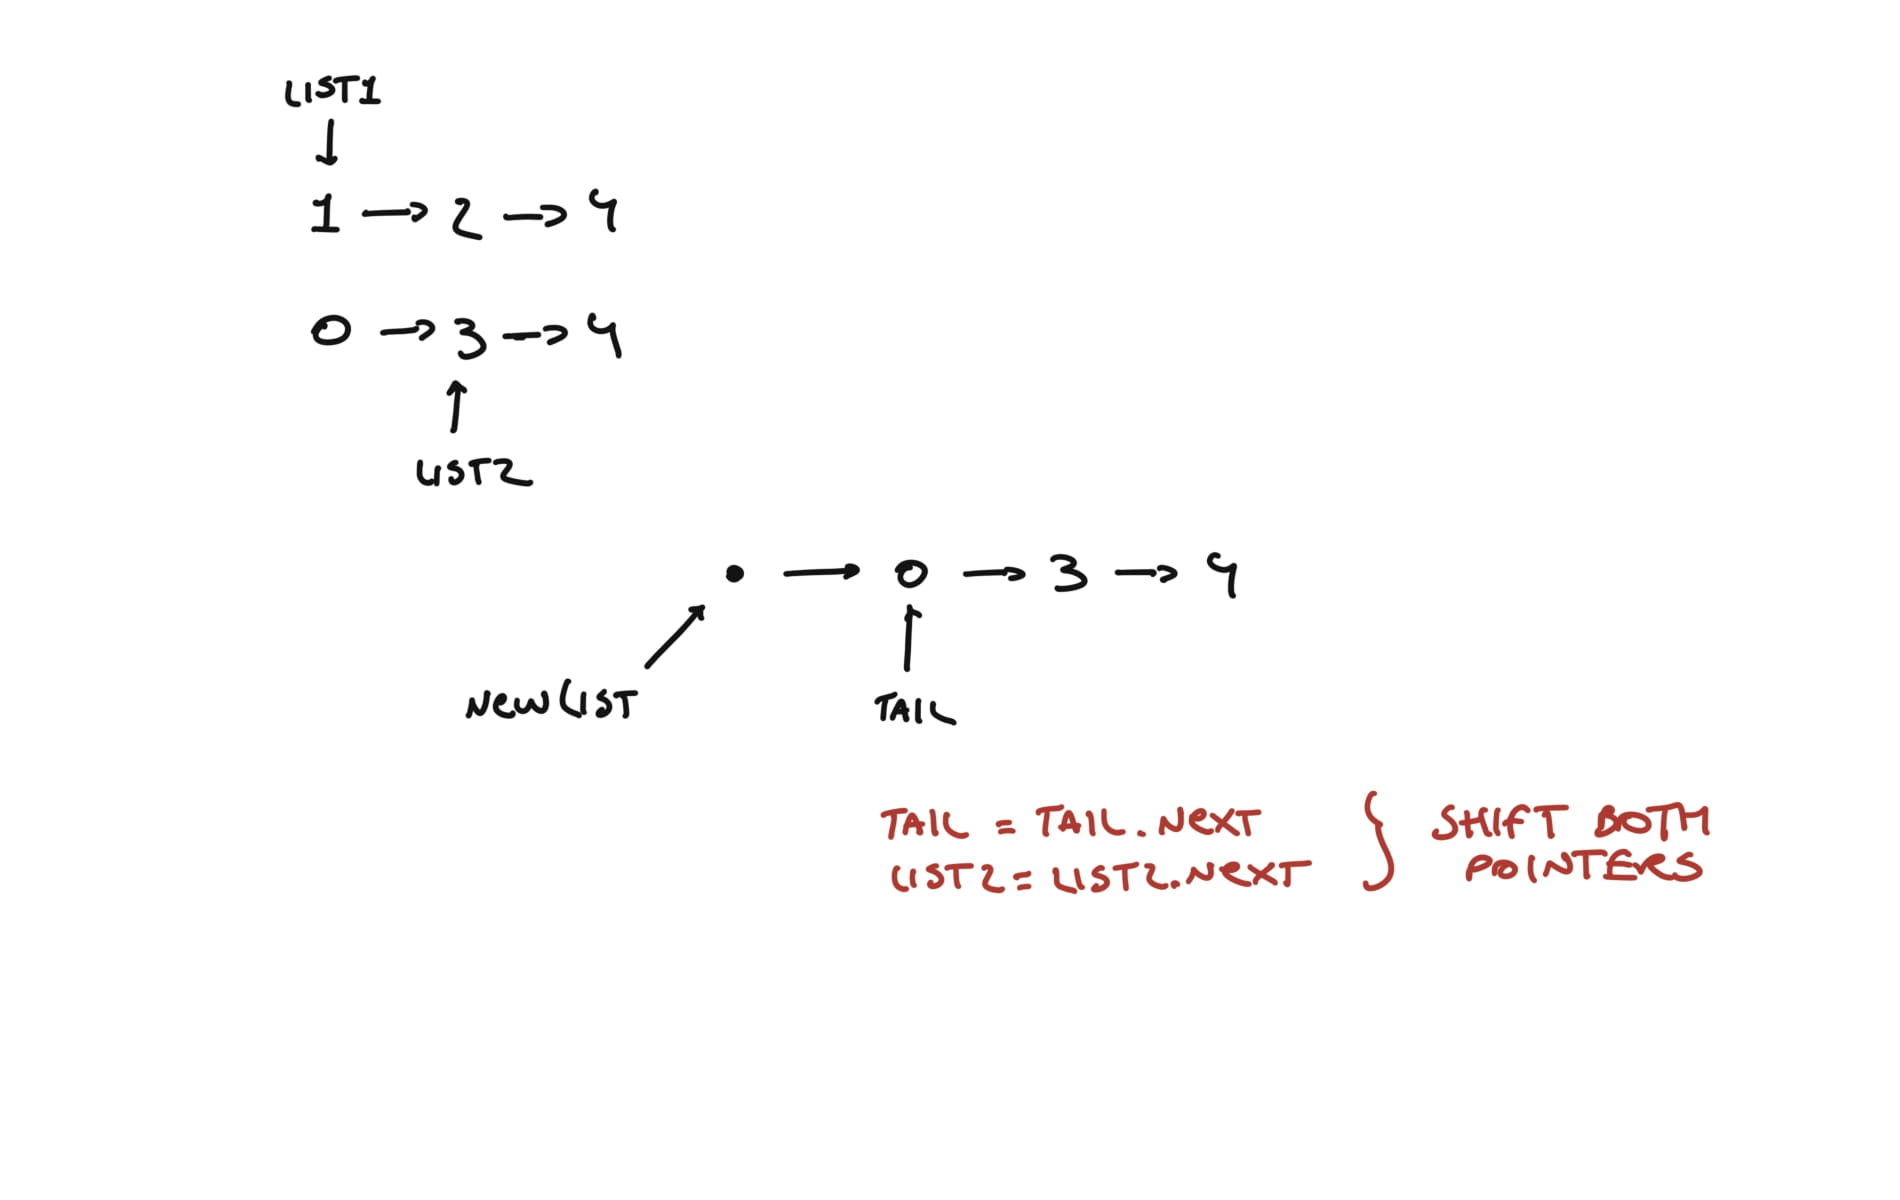 LIST1
↓
1 → 2 → 4
0 → 3 → 4
↑
LIST2
• → 0 → 3 → 4
NEWLIST
TAIL
TAIL = TAIL.NEXT
LIST2 = LIST2.NEXT
} SHIFT BOTH
POINTERS